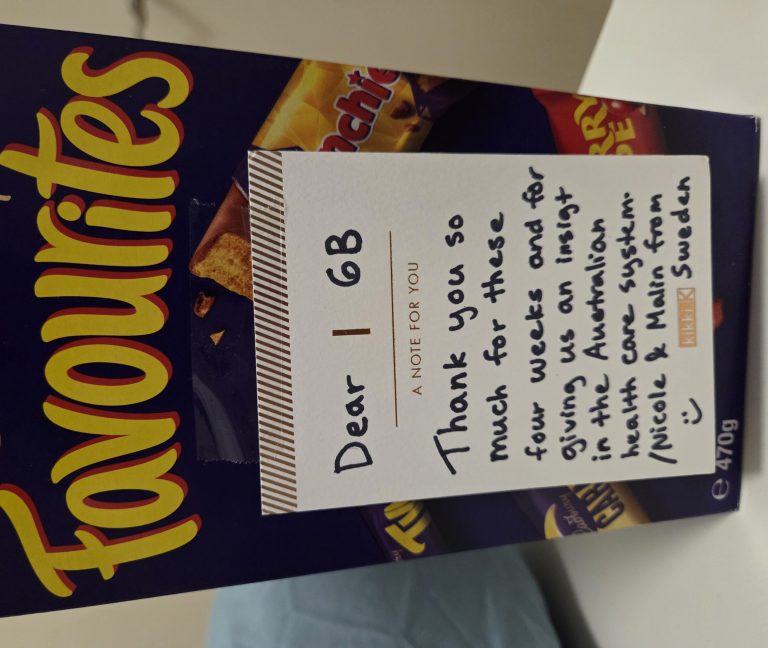 Favourites
nchie
RRY
PE
Dear | 6B
A NOTE FOR YOU
Thank you so
much for these
four weeks and for
giving us an insigt
in the Australian
health care system.
/Nicole & Malin from
kikki.K Sweden
:)
Cadbury
CARA
e 470g